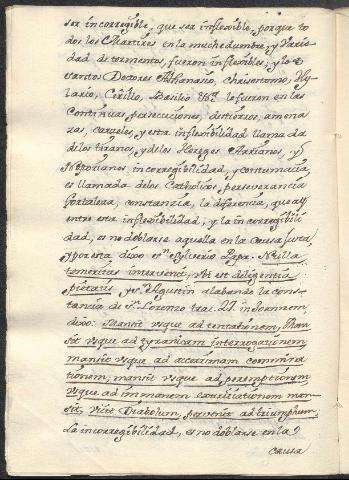 ser incorregible, que ser inflexible, porque to
dos los Martires en la muchedumbre, y varie-
dad de tormentos, fueron inflexibles, y los
santos Doctores Athanasio, Chrisostomo, Hy-
lario, Cirilio, Basilio &a. lo fueron en las
continuas persecuciones, destierros, amena
zas, carceles, y esta inflexibilidad llamada
de los tiranos, y de los Hereges Arrianos, y
Nestorianos, incorregibilidad, y contumacia,
es llamada de los Catholicos perseverancia
fortaleza, constanzia, la diferencia, que ay
entre esta inflexibilidad, y la incorregibili
dad, es no doblarse aquella en la causa justa,
y por esta dixo Sn. Sylverio Papa. Nulla
temeritas intervenit, ubi est diligentia
pietatis y Sn. Agustin alabando la cons-
tancia de Sn. Lorenzo trac. 27. in Joannem,
dixo: Mansit usque ad tentationem, Man
sit usque ad tyranicam interrogationem
mansit usque ad acerrimam commina
tionem, mansit usque ad peremptionem
usque ad immanem excruciationem man
sit, vicit Diabolum, pervenit ad triumphum,
la incorregibilidad, es no doblarse en la
causa